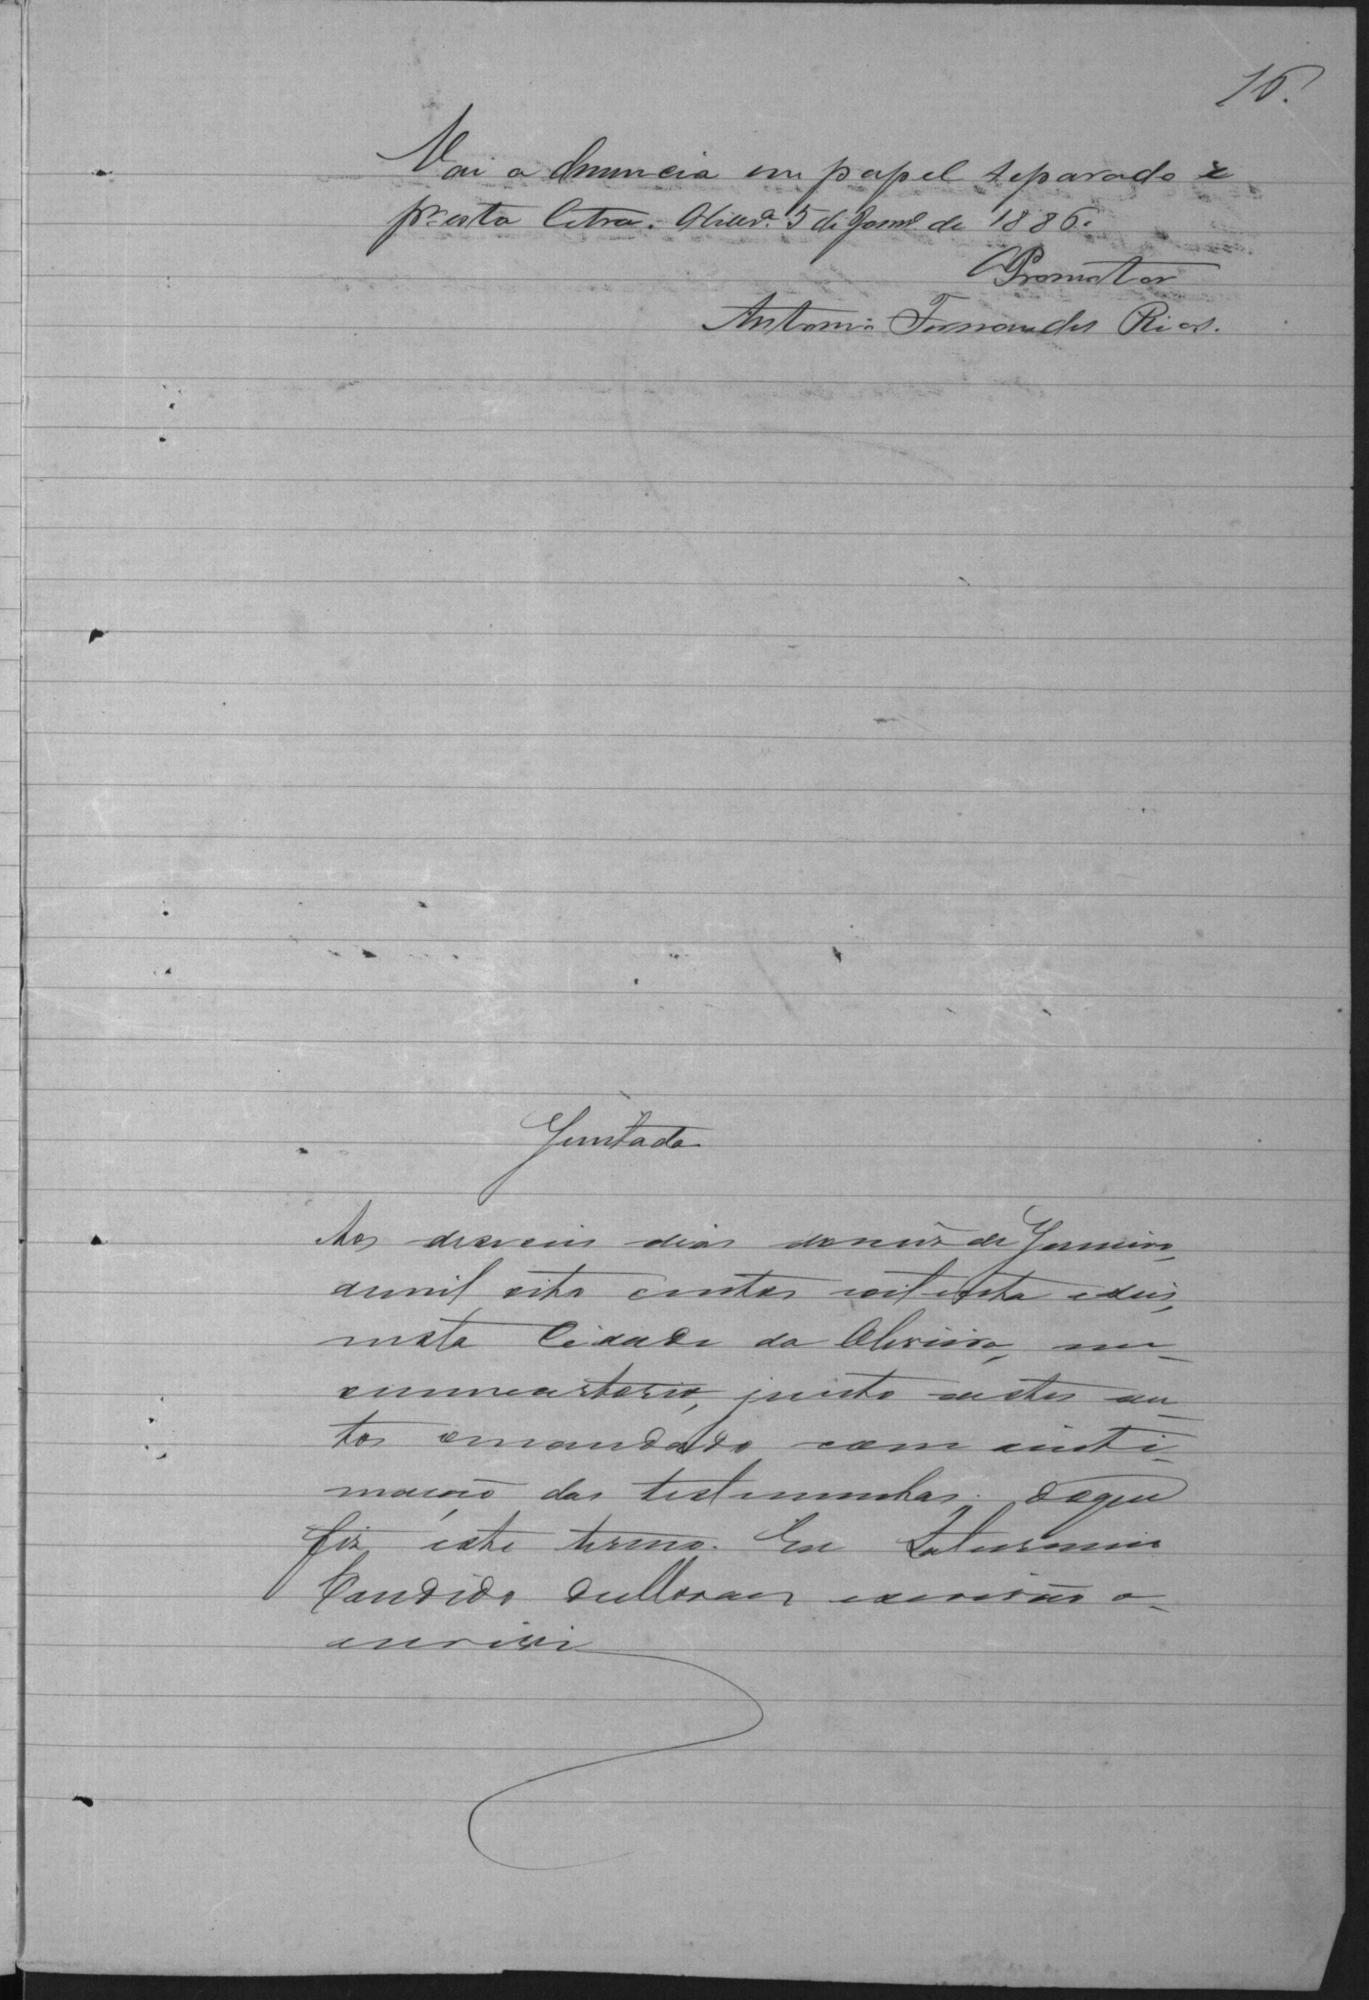 16.
Vai a denuncia em papel separado e
pr. esta letra. Olivr.ª 5 de Janr.º de 1886.
O Promotor
Antonio Fernandes Rios.
Juntada
Aos deseseis dias do mez de Janeiro,
de mil oito centos e oitenta e seis,
nesta Cidade da Oliveira, em
meu cartorio, junto a estes au-
tos o mandado com a inti-
mação das testemunhas. Do que
fiz este termo. Eu
Candido de Moraes escrivão o
escrivi